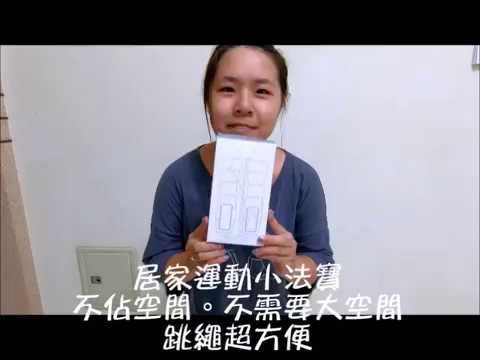 居家運動小法寶
不佔空間。不需要大空間
跳繩超方便